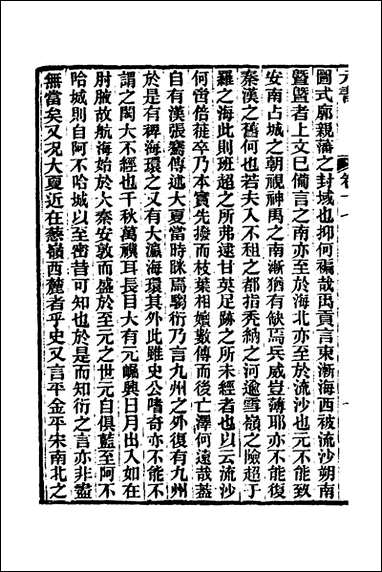 元書 卷十七
圖式廓親藩之封域也抑何褊哉禹貢言東漸海西被流沙朔南
暨暨者上文已備言之南亦至於海北亦至於流沙也元不能致
安南占城之朝視神禹之南漸猶有缺焉兵威豈薄耶亦不能復
秦漢之舊何也若夫入不租之都指禿納之河逾雪嶺之險超于
羅之海此則班超之所弗遠甘英足跡之所未經者也以云流沙
何啻倍蓰卒乃本實先撥而枝葉相嬗數傳而後亡澤何遠哉蓋
自有漢張騫傳述大夏當時眯焉騶衍乃言九州之外復有九州
於是有裨海環之又有大瀛海環其外此雖史公嗜奇亦不能不
謂之閎大不經也千秋萬禩耳長目大有元崛興日月出入如在
肘腋故航海始於大秦安敦而盛於至元之世尤自俱藍至阿不
哈城則自阿不哈城以至密昔可知也於是而知衍之言亦非盡
無當矣又况大夏近在蔥嶺西麓者乎史又言平金平宋南北之